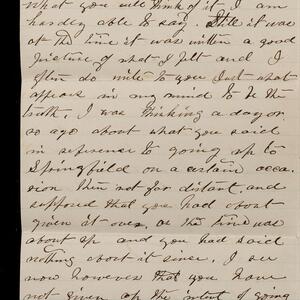 what you will think of it, I am
hardly able to say. Still it was
at the time it was written a good
picture of what I felt and I
often do write to you Just what
appears in my mind to be the
truth. I was thinking a day or
so ago about what you said
in reference to going up to
Springfield on a certain occa
sion then not far distant, and
supposed that you had about
given it over, as the time was
about up and you had said
nothing about it since. I see
now however that you have
not given up the intent of going